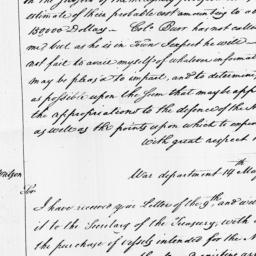 estimate of their probable cost amounting to a
150000 Dollars — Col. Burr has not call
me but as he is in Town I expect he will
not fail to avail myself of whatever informa
may be pleas'd to impart, and to determin
as possible upon the sum that may be app
the appropriations to the defence of the
as well as the points upon which to expe
with great respect
War department 14th May
Watson
Sir
I have received your Letter of the 9th and
it to the Secretary of the Treasury, with
the purchase of vessels intended for the N